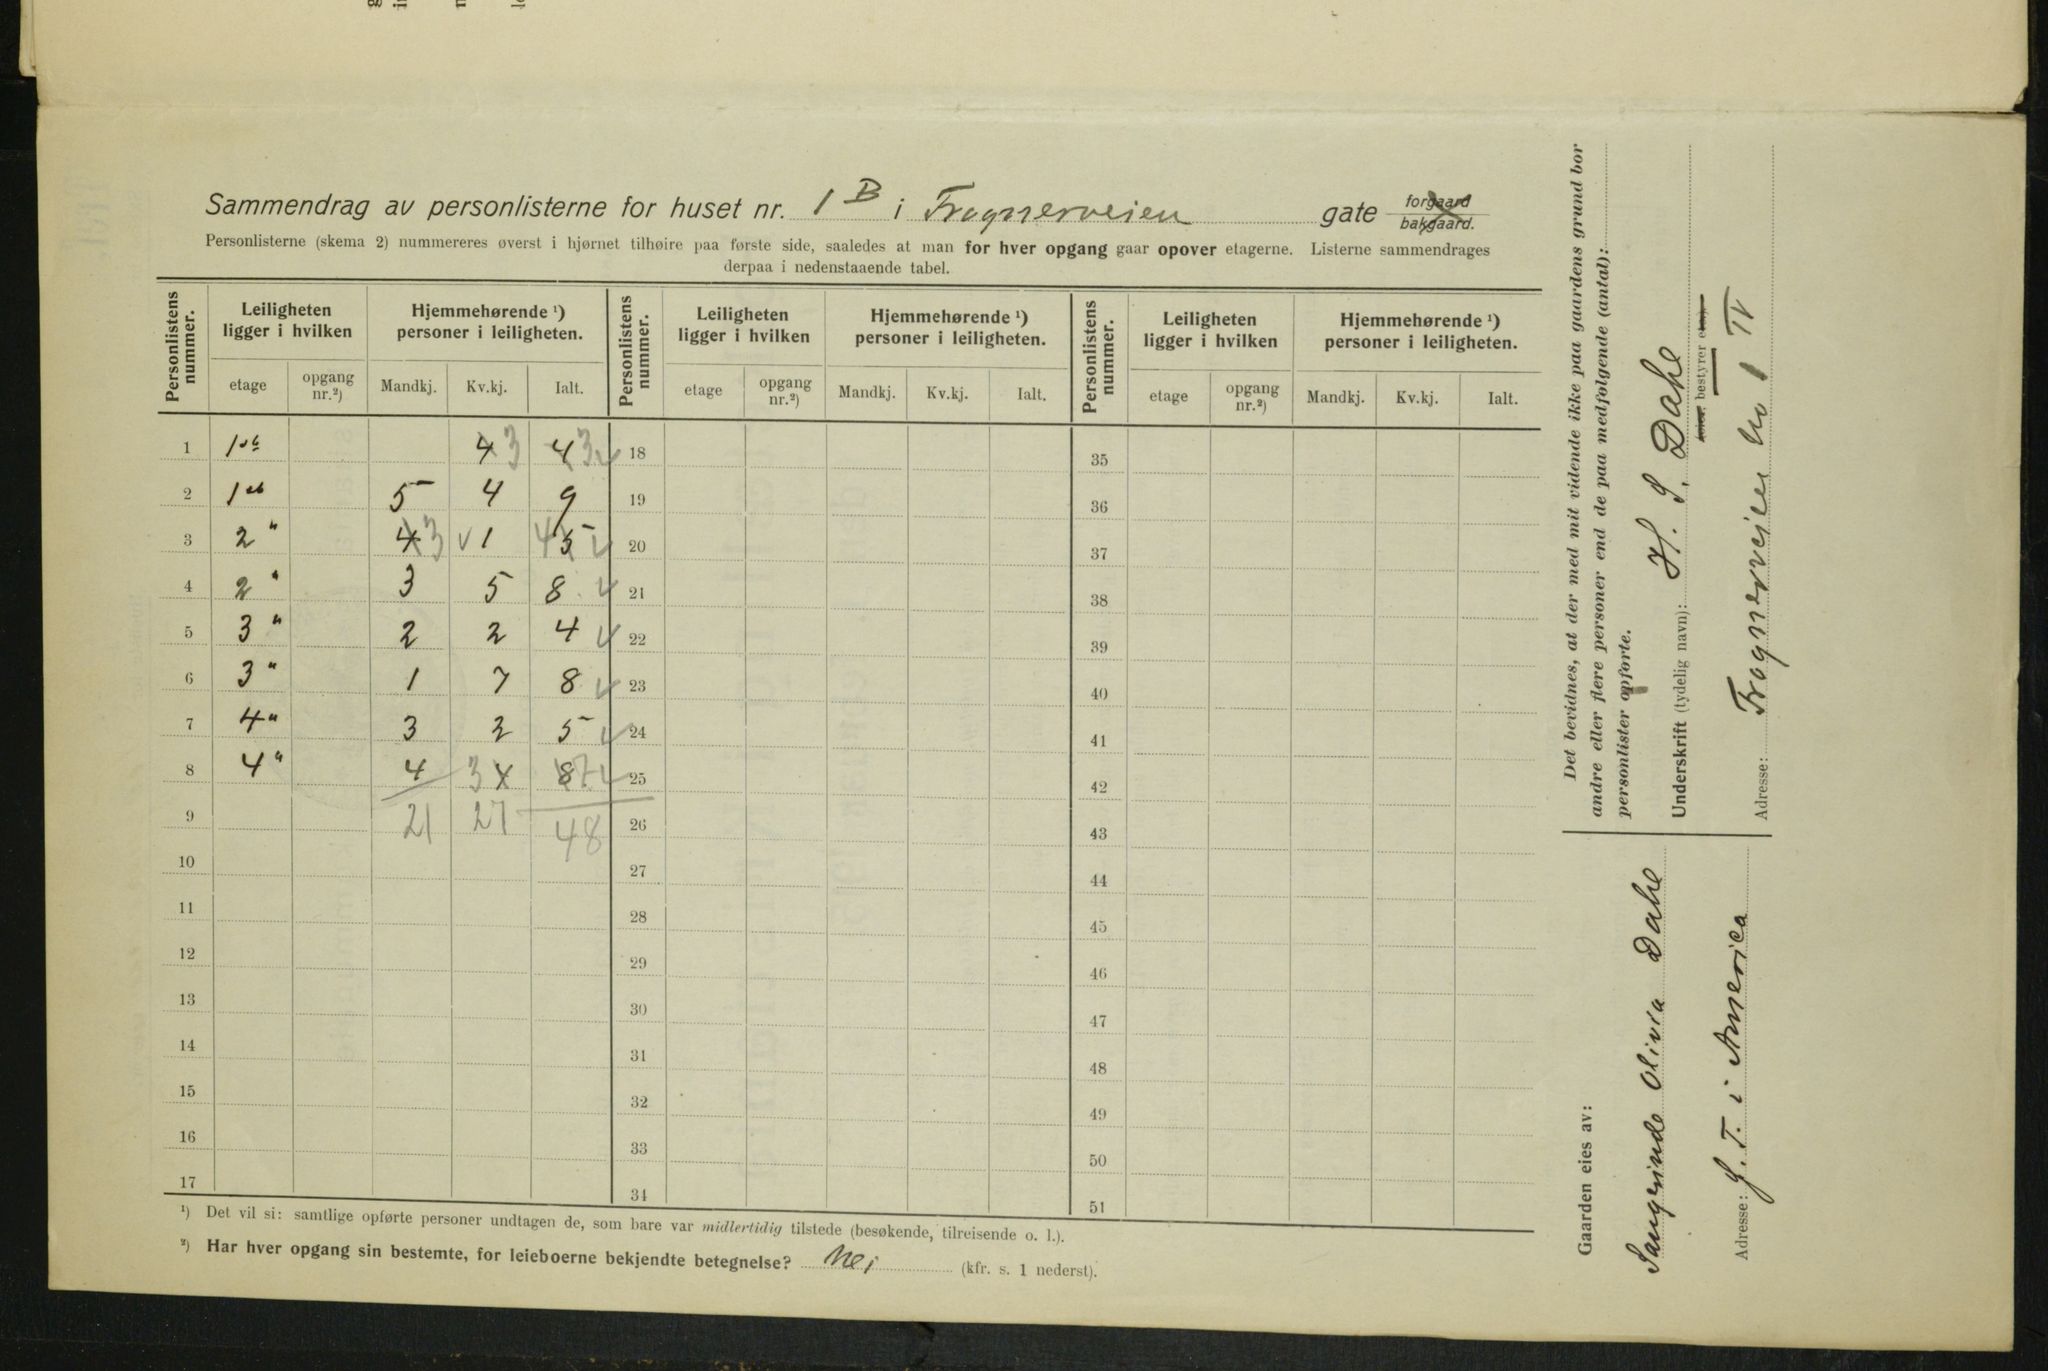 Sammendrag av personlisterne for huset nr. 1B i Frognerveien gate forgaard bakgaard.
Personlisterne (skema 2) nummereres øverst i hjørnet tilhøire paa første side, saaledes at man for hver opgang gaar opover etagerne. Listerne sammendrages
derpaa i nedenstaaende tabel.
Personlistens nummer. Leiligheten ligger i hvilken Hjemmehørende ¹) personer i leiligheten. Personlistens nummer. Leiligheten ligger i hvilken Hjemmehørende ¹) personer i leiligheten. Personlistens nummer. Leiligheten ligger i hvilken Hjemmehørende ¹) personer i leiligheten.
etage opgang nr.²) Mandkj. Kv.kj. Ialt. etage opgang nr.²) Mandkj. Kv.kj. Ialt. etage opgang nr.²) Mandkj. Kv.kj. Ialt.
1 1ste 4 3 4 3 18 35
2 1ste 5 4 9 19 36
3 2 " 4 3 1 4 5 20 37
4 2 " 3 5 8 21 38
5 3 " 2 2 4 22 39
6 3 " 1 7 8 23 40
7 4 " 3 2 5 24 41
8 4 " 4 3 4 8 7 25 42
9 21 27 48 26 43
10 27 44
11 28 45
12 29 46
13 30 47
14 31 48
15 32 49
16 33 50
17 34 51
¹) Det vil si: samtlige opførte personer undtagen de, som bare var midlertidig tilstede (besøkende, tilreisende o. l.).
²) Har hver opgang sin bestemte, for leieboerne bekjendte betegnelse? Nei (kfr. s. 1 nederst).
Det bevidnes, at der med mit vidende ikke paa gaardens grund bor
andre eller flere personer end de paa medfølgende (antal):
personlister opførte.
Underskrift (tydelig navn): H. S. Dahl
bestyrer
Adresse: Frognerveien No 1 IV
Gaarden eies av:
Olivia Dahl
Adresse: G. T. i America